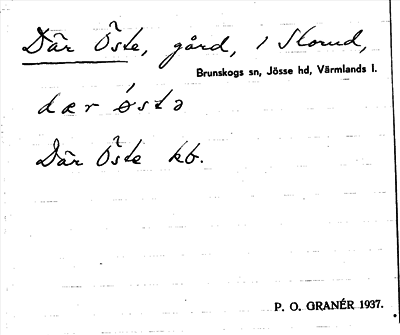 Där Öste, gård, i Storud,
Brunskogs sn, Jösse hd, Värmlands l.
dær østə
Där Öste kb.
P. O. GRANÉR 1937.